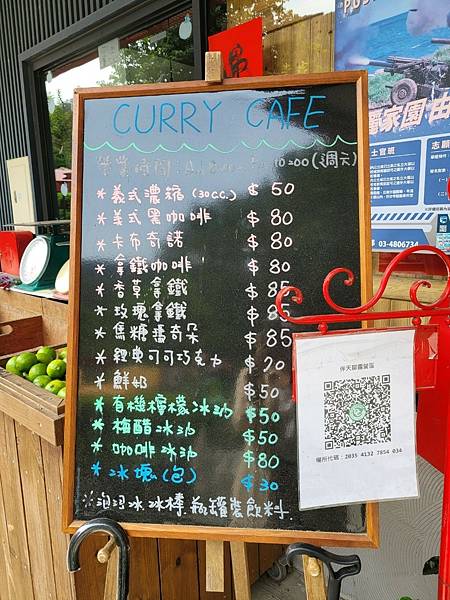 CURRY CAFE
營業時間:
* 義式濃縮 (30cc.) $50
* 義式黑咖啡 $80
* 卡布奇諾 $80
* 拿鐵咖啡 $80
* 香草拿鐵 $85
* 玫瑰拿鐵 $85
* 焦糖瑪奇朵 $85
* 經典可可巧克力 $70
* 鮮奶 $50
* 有機檸檬冰沙 $50
* 梅醋冰沙 $50
* 咖啡冰沙 $80
* 冰塊(包) $30
※泡泡冰冰棒瓶罐裝飲料.
伴天腳露營區
場所代碼:2035 4132 7854 034
家園
士官班
志願
03-4806734